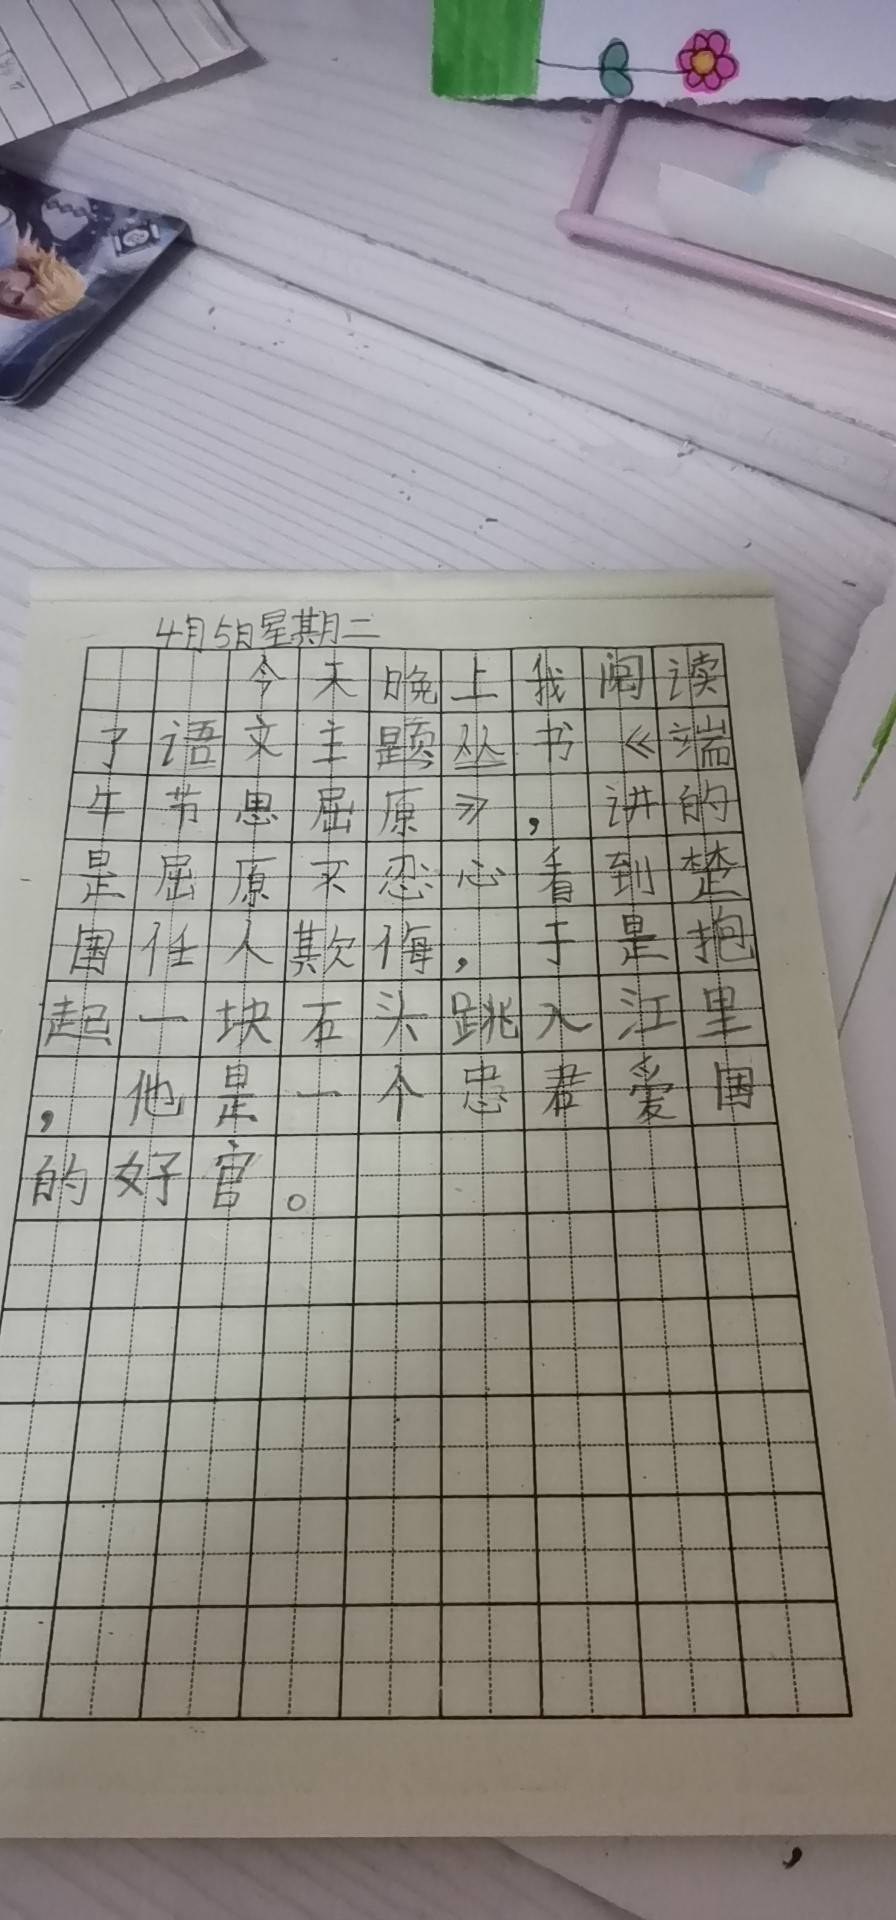 4月5日星期二
今天晚上我阅读
了语文主题丛书《端
午节思屈原》，讲的
是屈原不忍心看到楚
国任人欺侮，于是抱
起一块石头跳入江里
，他是一个忠君爱国
的好官。